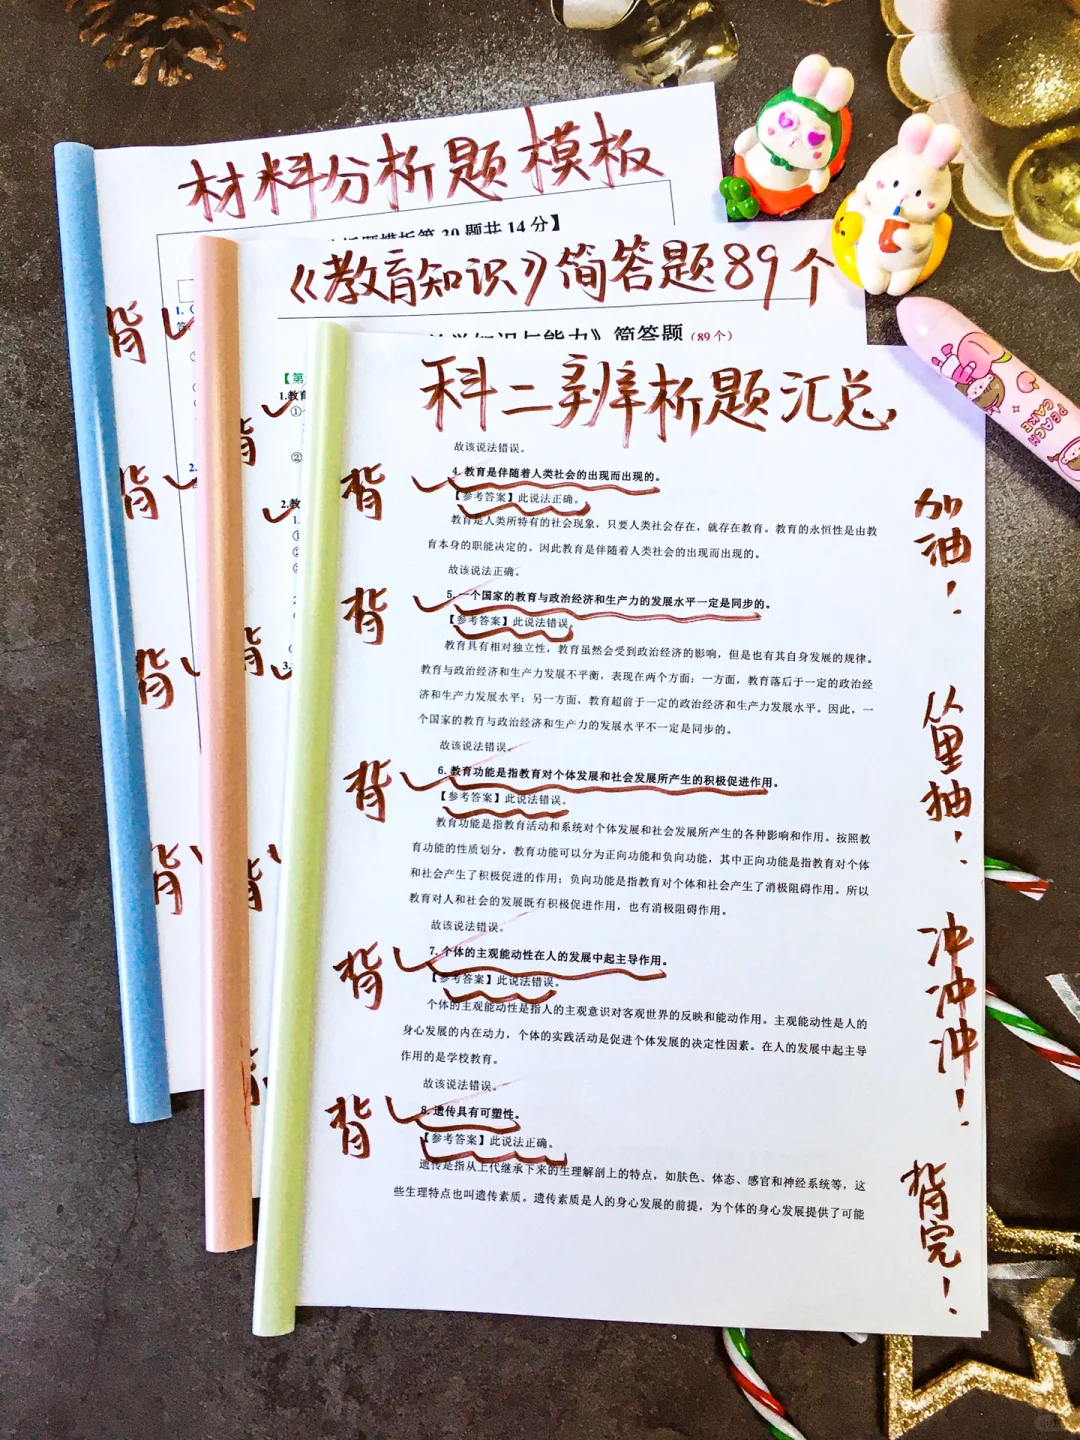 材料分析题模板
题模板第20题共14分】
《教育知识》简答题89个
识与能力》简答题（89个）
科二辨析题汇总
背
背
背
背
背
背
背
背
背
背
背
背
背
1.
2.
【第
1.教育
①
②
2.教
1.
①
②
③
3.
故该说法错误。
4. 教育是伴随着人类社会的出现而出现的。
【参考答案】此说法正确。
教育是人类所特有的社会现象，只要人类社会存在，就存在教育。教育的永恒性是由教
育本身的职能决定的。因此教育是伴随着人类社会的出现而出现的。
故该说法正确。
5. 一个国家的教育与政治经济和生产力的发展水平一定是同步的。
【参考答案】此说法错误。
教育具有相对独立性，教育虽然会受到政治经济的影响，但是也有其自身发展的规律。
教育与政治经济和生产力发展不平衡，表现在两个方面：一方面，教育落后于一定的政治经
济和生产力发展水平；另一方面，教育超前于一定的政治经济和生产力发展水平。因此，一
个国家的教育与政治经济和生产力的发展水平不一定是同步的。
故该说法错误。
6. 教育功能是指教育对个体发展和社会发展所产生的积极促进作用。
【参考答案】此说法错误。
教育功能是指教育活动和系统对个体发展和社会发展所产生的各种影响和作用。按照教
育功能的性质划分，教育功能可以分为正向功能和负向功能，其中正向功能是指教育对个体
和社会产生了积极促进的作用；负向功能是指教育对个体和社会产生了消极阻碍作用。所以
教育对人和社会的发展既有积极促进作用，也有消极阻碍作用。
故该说法错误。
7. 个体的主观能动性在人的发展中起主导作用。
【参考答案】此说法错误。
个体的主观能动性是指人的主观意识对客观世界的反映和能动作用。主观能动性是人的
身心发展的内在动力，个体的实践活动是促进个体发展的决定性因素。在人的发展中起主导
作用的是学校教育。
故该说法错误。
8. 遗传具有可塑性。
【参考答案】此说法正确。
遗传是指从上代继承下来的生理解剖上的特点，如肤色、体态、感官和神经系统等，这
些生理特点也叫遗传素质。遗传素质是人的身心发展的前提，为个体的身心发展提供了可能
加油！
从里抽！
冲冲冲！
背完！
PEACH
CAKE